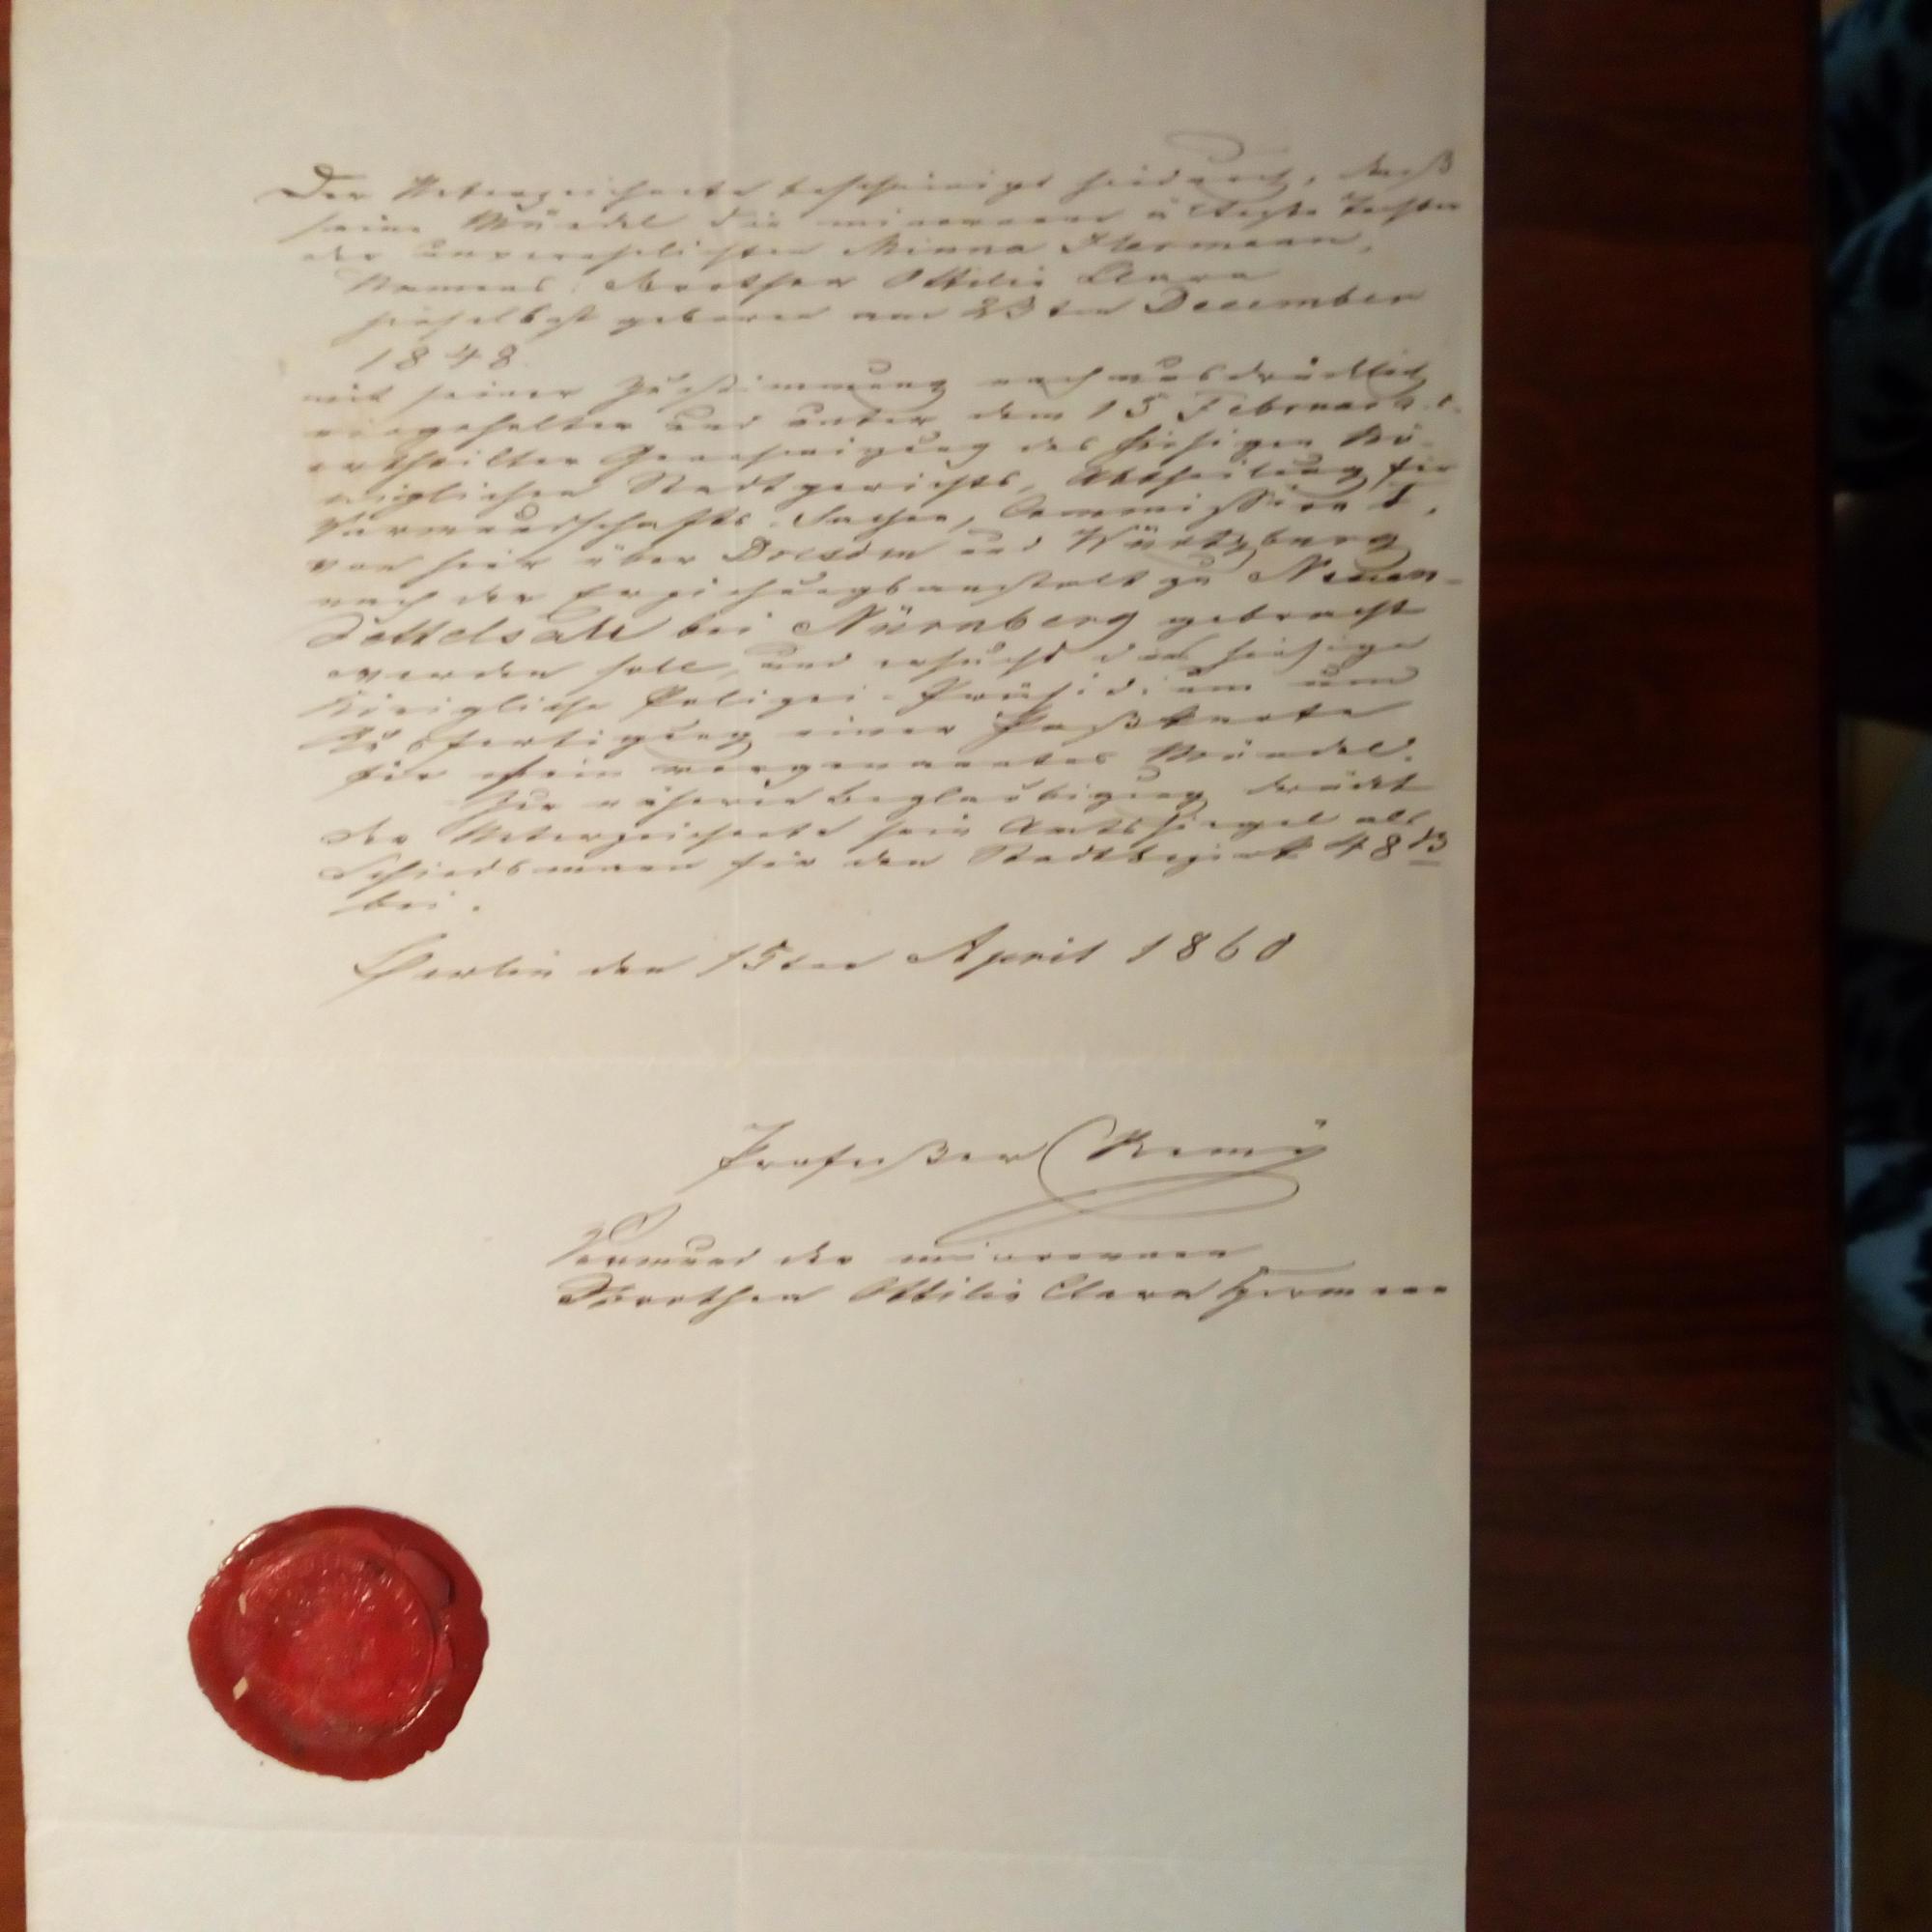 Der Unterzeichnete bescheinigt hierdurch, daß
seine Mündel die minorenne älteste Tochter
der unverehelichten Minna Hermann,
Namens: Dorothea Ottilie Clara
hieselbst geboren am 23ten December
1848
mit seiner Zustimmung nach ausdrücklich
eingeholter und unter dem 15 Februar
ertheilter Genehmigung des hiesigen Kö-
niglichen Stadtgerichts, Abtheilung für
Vormundschafts-Sachen, Commission
von hier über Dresden und Würtzburg
nach der Erziehungsanstalt zu Neuen-
dettelsau bei Nürnberg gebracht
werden soll, und ersucht das hiesige
Königliche Polizei-Präsidium um
Ausfertigung einer Paßkarte
für sein vorgenanntes Mündel.
Zur näheren Beglaubigung drückt
der Unterzeichnete sein Amtssiegel als
Schiedsmann für den Stadtbezirk 48 B
bei.
Berlin den 15ten April 1860
Profeßor Remÿ
Vormund der minorennen
Dorothea Ottilie Clara Hermann